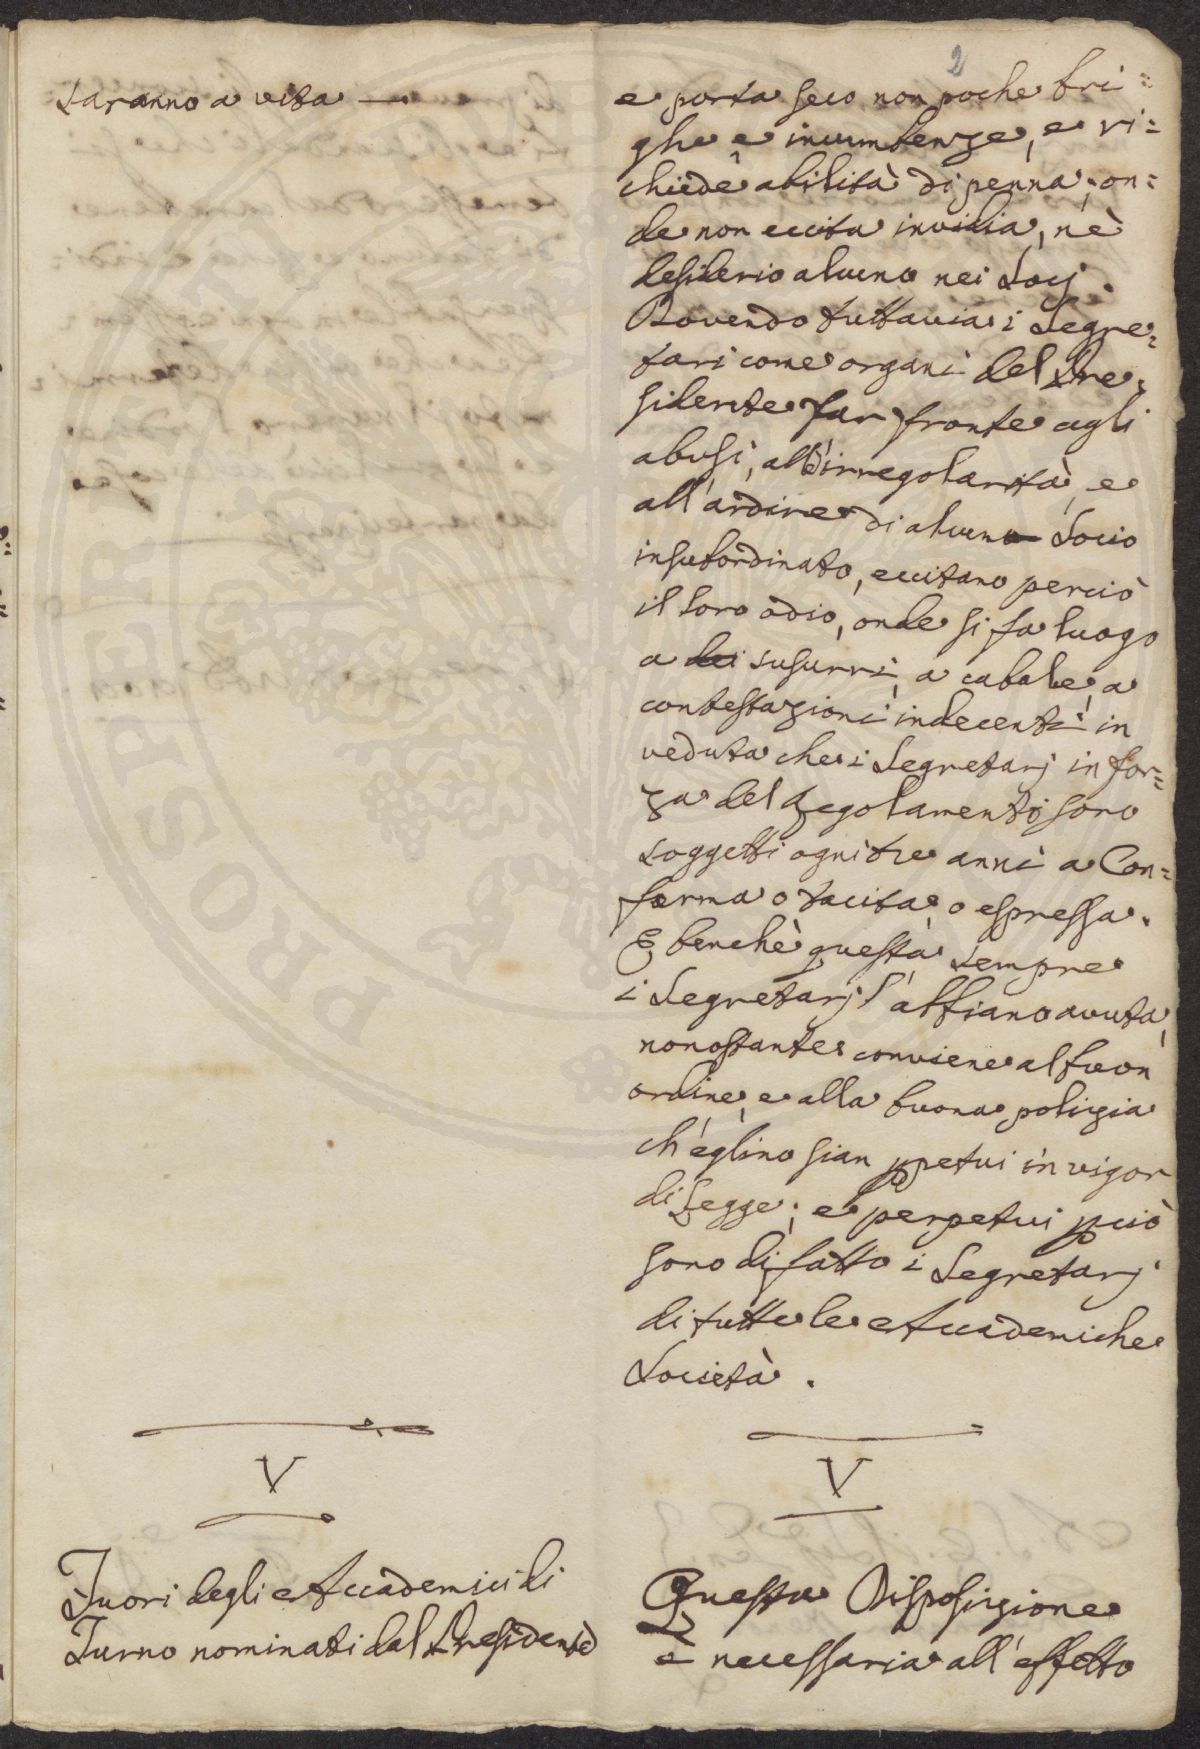 saranno a vita —
2
e porta seco non poche bri=
ghe e incumbenze, e ri=
chiede abilità di penna; on=
de non eccita invidia, nè
desiderio alcuno nei Socj.
Dovendo tuttavia i Segre=
tari come organi del Pre=
sidente far fronte agli
abusi, all'irregolarità, e
all'ardire di alcun Socio
insubordinato, eccitano perciò
il loro odio, onde si fa luogo
a dei susurri, a cabale, a
contestazioni indecenti in
veduta che i Segretarj in for=
za del Regolamento sono
soggetti ogni tre anni a Con=
ferma o tacita, o espressa.
E benchè questa sempre
i Segretarj l'abbiano avuta,
nonostante conviene al buon
ordine, e alla buona polizia
ch'eglino sian ppetui in vigor
di Legge; e perpetui pciò
sono di fatto i Segretarj
di tutte le Accademiche
Società.
V
Fuori degli Accademici di
Turno nominati dal Presidente
V
Questa Disposizione
è necessaria all'effetto
PROSPERI